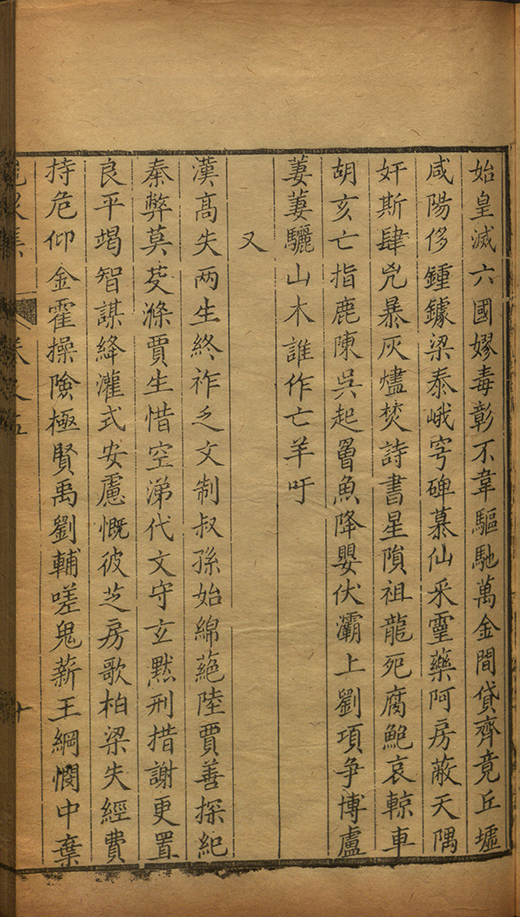 始皇滅六國嫪毒彰不韋驅馳萬金間貸齊竟丘墟
咸陽侈鍾鐻梁泰峨穹碑慕仙采靈藥阿房蔽天隅
奸斯肆兇暴灰燼焚詩書星隕祖龍死腐鮑哀輬車
胡亥亡指鹿陳吳起罾魚降嬰伏灞上劉項爭博盧
萋萋驪山木誰作亡羊吁
又
漢高失两生終祚乏文制叔孫始綿蕝陸賈善探紀
秦弊莫芟滌賈生惜空涕代文守玄黙刑措謝更置
良平竭智謀絳灌式安慮慨彼芝房歌柏梁失經費
持危仰金霍操險極賢禹劉輔嗟鬼薪王綱憫中棄